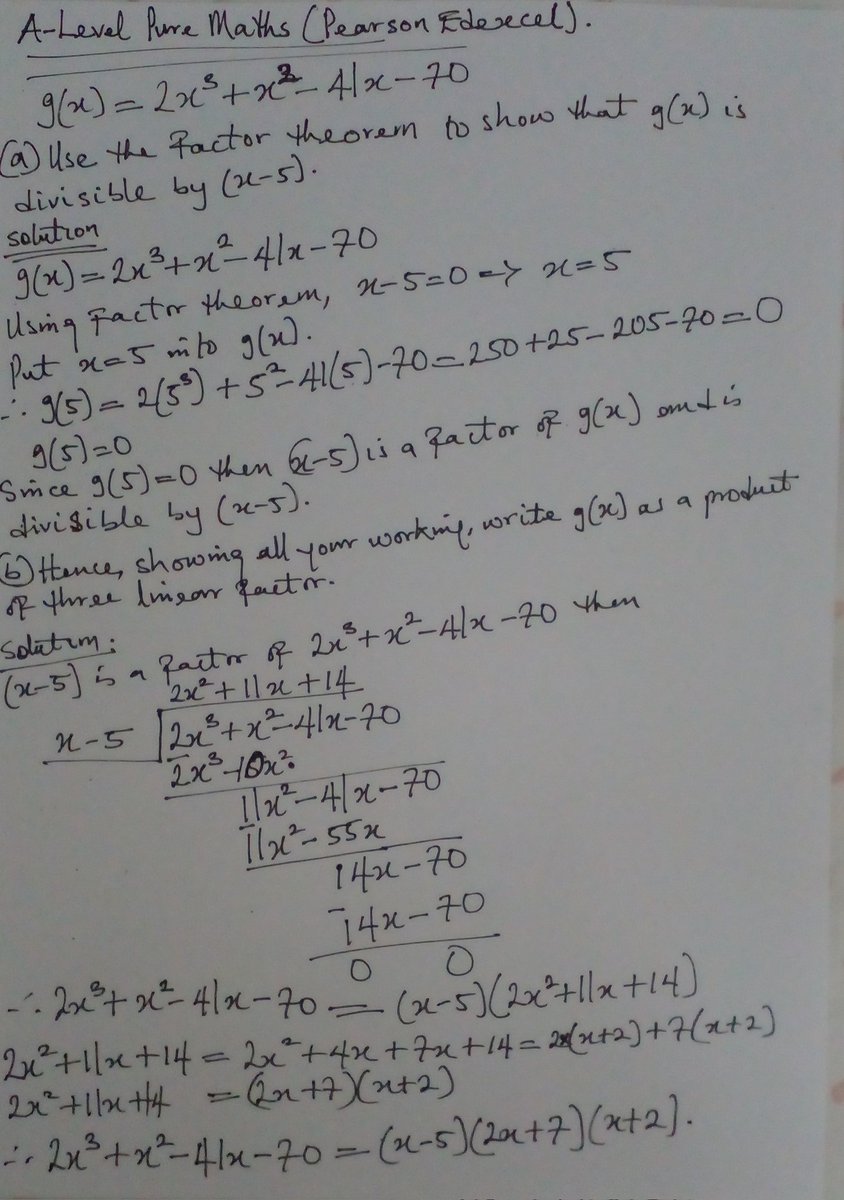 A-Level Pure Maths (Pearson Edexcel).
g(x) = 2x³ + x² - 41x - 70
(a) Use the Factor theorem to show that g(x) is
divisible by (x-5).
solution
g(x) = 2x³ + x² - 41x - 70
Using Factor theorem, x-5=0 => x=5
Put x=5 into g(x).
∴ g(5) = 2(5³) + 5² - 41(5) - 70 = 250 + 25 - 205 - 70 = 0
g(5)=0
Since g(5)=0 then (x-5) is a factor of g(x) and is
divisible by (x-5).
(b) Hence, showing all your working, write g(x) as a product
of three linear factor.
Solution:
(x-5) is a factor of 2x³ + x² - 41x - 70 then
2x² + 11x + 14
x-5 | 2x³ + x² - 41x - 70
- 2x³ - 10x²
11x² - 41x - 70
- 11x² - 55x
14x - 70
- 14x - 70
0 0
∴ 2x³ + x² - 41x - 70 = (x-5)(2x² + 11x + 14)
2x² + 11x + 14 = 2x² + 4x + 7x + 14 = 2x(x+2) + 7(x+2)
2x² + 11x + 14 = (2x+7)(x+2)
∴ 2x³ + x² - 41x - 70 = (x-5)(2x+7)(x+2).